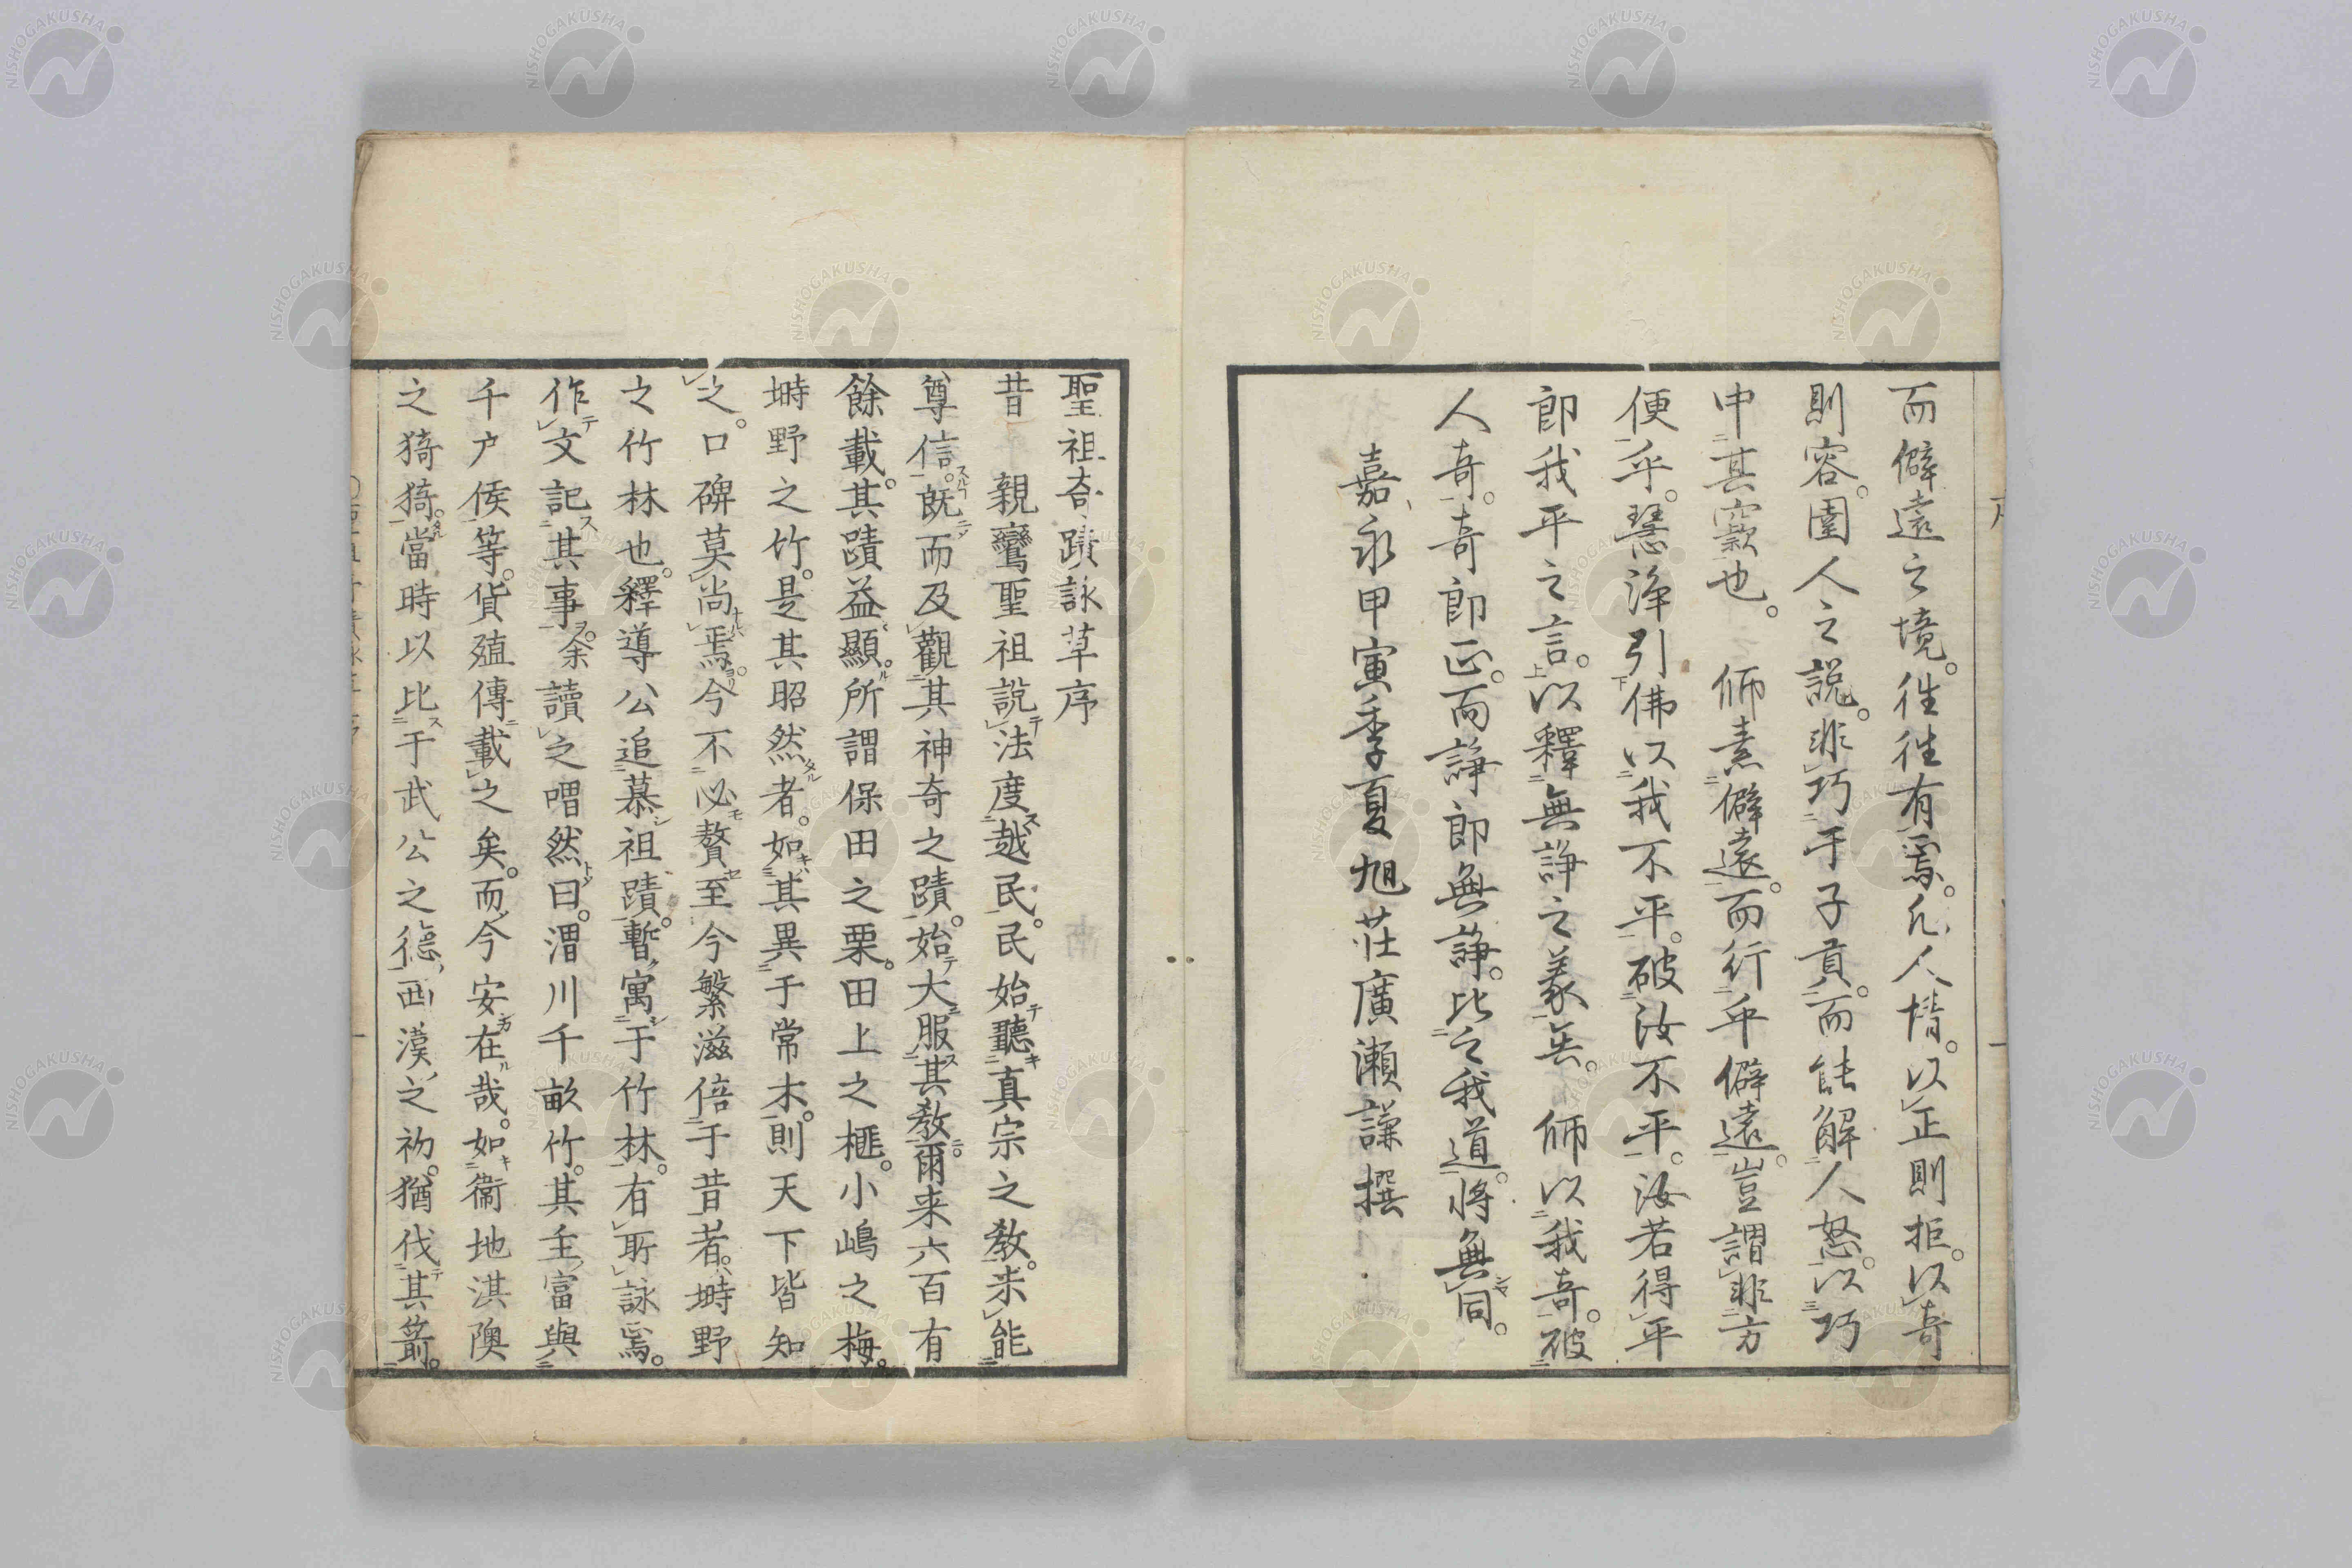 而僻遠之境。徃徃有焉。凡人情。以正則拒。以奇
則容。圉人之説。非巧于子貢。而能解人怒。以巧
中其窾也。師素僻遠。而行乎僻遠。豈謂非方
便乎。慧淨引佛以我不平。破汝不平。汝若得平
即我平之言。以釋無諍之義矣。師以我奇。破
人奇。奇即正。而諍即無諍。比之我道。將無同。
嘉永甲寅季夏旭莊廣瀬謙撰
聖祖奇蹟詠草序
昔親鸞聖祖説法度越民。民始聽真宗之教。未能
尊信。既而及觀其神奇之蹟。始大服其教爾来六百有
餘載。其蹟益顯。所謂保田之栗。田上之榧。小嶋之梅。
塒野之竹。是其昭然者。如其異于常木。則天下皆知
之。口碑莫尚焉。今不必贅至今繁滋倍于昔者。塒野
之竹林也。釋導公追慕祖蹟。暫寓于竹林。有所詠焉。
作文記其事。余讀之喟然曰。渭川千畝竹。其主富與
千户侯等。貨殖傳載之矣。而今安在哉。如衞地淇隩
之猗猗。當時以比于武公之德西漢之初。猶伐其箭。